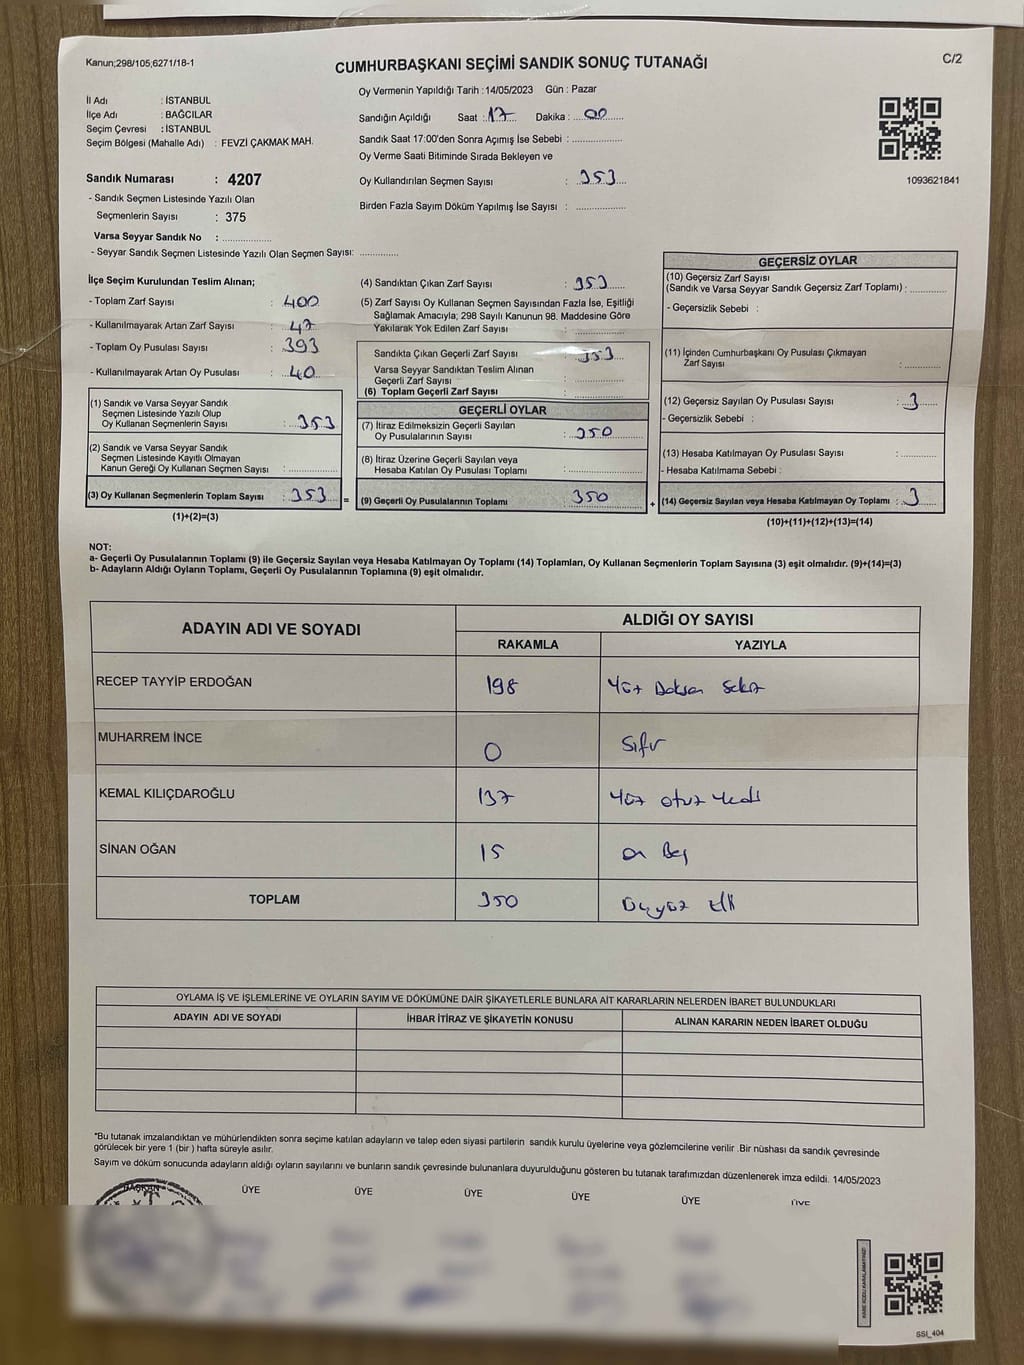 Kanun;298/105;6271/18-1
CUMHURBAŞKANI SEÇİMİ SANDIK SONUÇ TUTANAĞI
C/2
Oy Vermenin Yapıldığı Tarih :14/05/2023 Gün : Pazar
İl Adı : İSTANBUL
İlçe Adı : BAĞCILAR
Seçim Çevresi : İSTANBUL
Seçim Bölgesi (Mahalle Adı) : FEVZİ ÇAKMAK MAH.
Sandığın Açıldığı Saat : 17 Dakika : 00
Sandık Saat 17:00'den Sonra Açımış İse Sebebi :
Oy Verme Saati Bitiminde Sırada Bekleyen ve
Oy Kullandırılan Seçmen Sayısı : 353
Birden Fazla Sayım Döküm Yapılmış İse Sayısı :
1093621841
Sandık Numarası : 4207
- Sandık Seçmen Listesinde Yazılı Olan
Seçmenlerin Sayısı : 375
Varsa Seyyar Sandık No :
- Seyyar Sandık Seçmen Listesinde Yazılı Olan Seçmen Sayısı:
İlçe Seçim Kurulundan Teslim Alınan;
- Toplam Zarf Sayısı : 400
- Kullanılmayarak Artan Zarf Sayısı : 47
- Toplam Oy Pusulası Sayısı : 393
- Kullanılmayarak Artan Oy Pusulası : 40
(1) Sandık ve Varsa Seyyar Sandık
Seçmen Listesinde Yazılı Olup
Oy Kullanan Seçmenlerin Sayısı : 353
(2) Sandık ve Varsa Seyyar Sandık
Seçmen Listesinde Kayıtlı Olmayan
Kanun Gereği Oy Kullanan Seçmen Sayısı :
(3) Oy Kullanan Seçmenlerin Toplam Sayısı : 353 =
(1)+(2)=(3)
(4) Sandıktan Çıkan Zarf Sayısı : 353
(5) Zarf Sayısı Oy Kullanan Seçmen Sayısından Fazla İse, Eşitliği
Sağlamak Amacıyla; 298 Sayılı Kanunun 98. Maddesine Göre
Yakılarak Yok Edilen Zarf Sayısı :
Sandıkta Çıkan Geçerli Zarf Sayısı : 353
Varsa Seyyar Sandıktan Teslim Alınan
Geçerli Zarf Sayısı :
(6) Toplam Geçerli Zarf Sayısı :
GEÇERLİ OYLAR
(7) İtiraz Edilmeksizin Geçerli Sayılan
Oy Pusulalarının Sayısı : 350
(8) İtiraz Üzerine Geçerli Sayılan veya
Hesaba Katılan Oy Pusulası Toplamı :
(9) Geçerli Oy Pusulalarının Toplamı : 350 +
GEÇERSİZ OYLAR
(10) Geçersiz Zarf Sayısı
(Sandık ve Varsa Seyyar Sandık Geçersiz Zarf Toplamı) :
- Geçersizlik Sebebi :
(11) İçinden Cumhurbaşkanı Oy Pusulası Çıkmayan
Zarf Sayısı :
(12) Geçersiz Sayılan Oy Pusulası Sayısı : 3
- Geçersizlik Sebebi :
(13) Hesaba Katılmayan Oy Pusulası Sayısı :
- Hesaba Katılmama Sebebi :
(14) Geçersiz Sayılan veya Hesaba Katılmayan Oy Toplamı : 3
(10)+(11)+(12)+(13)=(14)
NOT:
a- Geçerli Oy Pusulalarının Toplamı (9) ile Geçersiz Sayılan veya Hesaba Katılmayan Oy Toplamı (14) Toplamları, Oy Kullanan Seçmenlerin Toplam Sayısına (3) eşit olmalıdır. (9)+(14)=(3)
b- Adayların Aldığı Oyların Toplamı, Geçerli Oy Pusulalarının Toplamına (9) eşit olmalıdır.
ADAYIN ADI VE SOYADI
ALDIĞI OY SAYISI
RAKAMLA YAZIYLA
RECEP TAYYİP ERDOĞAN 198 Yüz Doksan Sekiz
MUHARREM İNCE 0 Sıfır
KEMAL KILIÇDAROĞLU 137 Yüz otuz Yedi
SİNAN OĞAN 15 on Beş
TOPLAM 350 Üçyüz Elli
OYLAMA İŞ VE İŞLEMLERİNE VE OYLARIN SAYIM VE DÖKÜMÜNE DAİR ŞİKAYETLERLE BUNLARA AİT KARARLARIN NELERDEN İBARET BULUNDUKLARI
ADAYIN ADI VE SOYADI İHBAR İTİRAZ VE ŞİKAYETİN KONUSU ALINAN KARARIN NEDEN İBARET OLDUĞU
*Bu tutanak imzalandıktan ve mühürlendikten sonra seçime katılan adayların ve talep eden siyasi partilerin sandık kurulu üyelerine veya gözlemcilerine verilir .Bir nüshası da sandık çevresinde
görülecek bir yere 1 (bir ) hafta süreyle asılır.
Sayım ve döküm sonucunda adayların aldığı oyların sayılarını ve bunların sandık çevresinde bulunanlara duyurulduğunu gösteren bu tutanak tarafımızdan düzenlenerek imza edildi. 14/05/2023
BAŞKAN ÜYE ÜYE ÜYE ÜYE ÜYE ÜYE
SSI_404